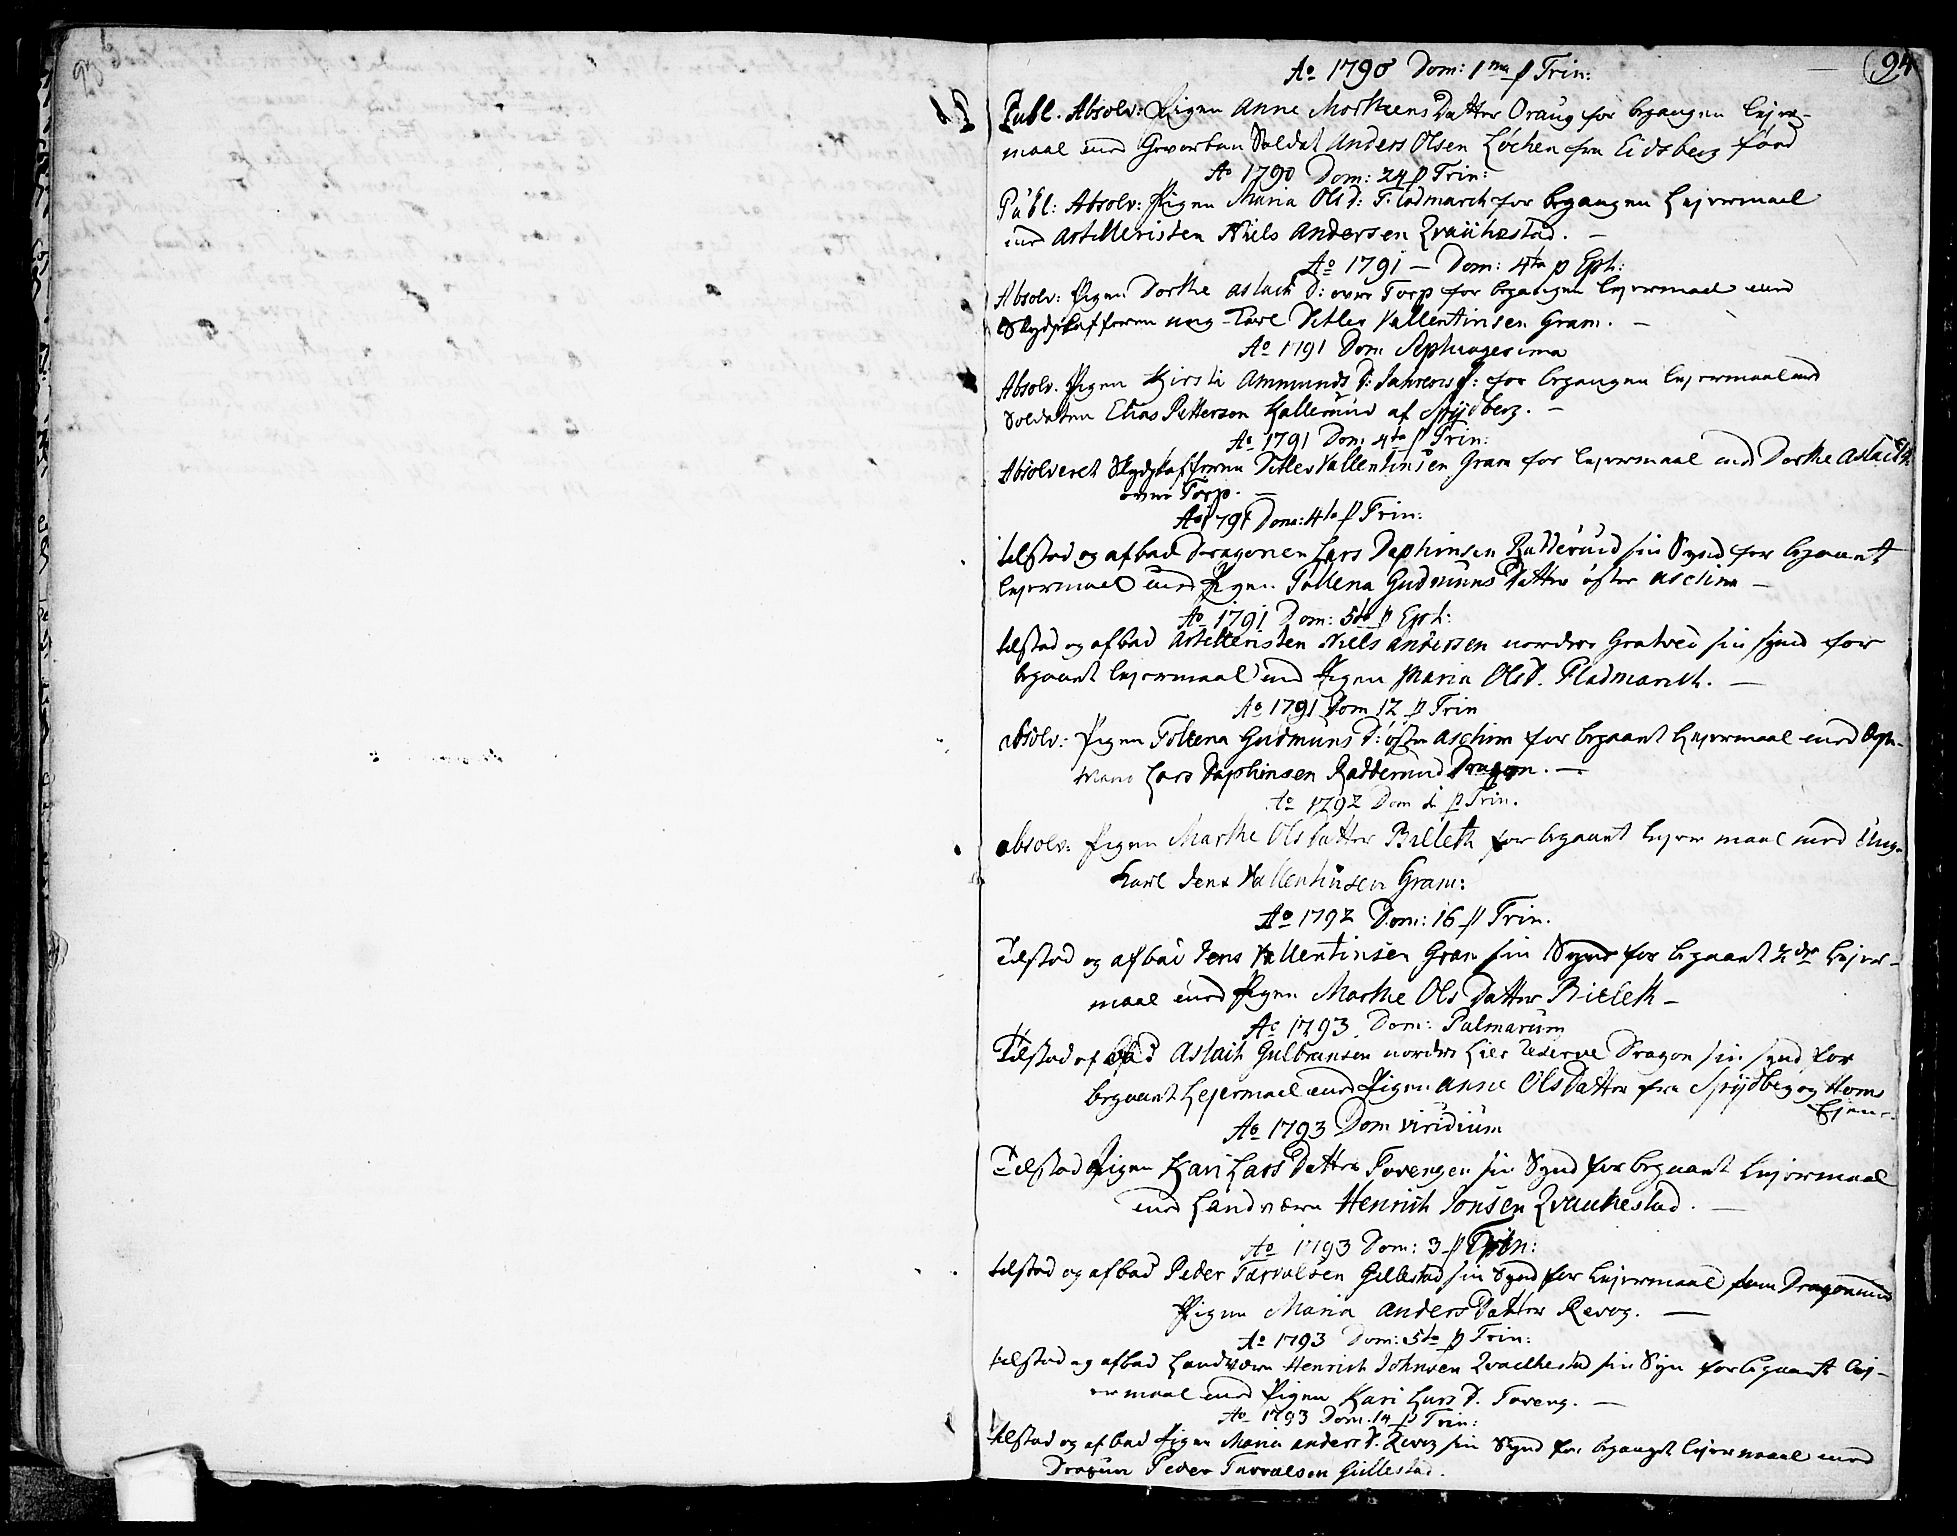 93
94
Ao 1790 Dom: 1ma p Trin:
Publ. Absolv: Pigen Anne Morthens Datter Oraug for begangen Lejer-
maal med Gevorben Soldat Anders Olsen Løchen fra Eidsberg
Ao 1790 Dom: 24 p Trin:
Publ: Absolv: Pigen Maria Ols d: Fladmarch for begangen Lejermaal
med Artilleristen Niels Andersen Qvauhestad. —
Ao 1791 — Dom: 4ta p Eph:
Absolv: Pigen Dorthe Aslach D: øvre Torp for begangen Lejermael med
Skydskafferen ung Karl Ditlev Vallentinsen Gram. —
Ao 1791 Dom Septuagesima
Absolv. Pigen Kirsti Ammunds D: for begangen Lejermaal med
Soldaten Elias Pettersen Kallerud af Spydberg. —
Ao 1791 Dom: 4ta p Trin:
Absolveret Skydskafferen Ditlev Vallentinsen Gram for Lejermaal med Dorthe Aslach D.
øvre Torp. —
Ao 1791 Dom: 4ta p Trin:
tilstod og afbad Dragonen Lars Daphinsen Rudderud sin Synd for begaaet
Lejermael med Pigen Tollena Gudmuns Datter øster Aschim —
Ao 1791 Dom: 5ta p Eph:
tilstod og afbad Artilleristen Niels Andersen nordre Gratved sin synd for
begaaet Lejermaal med Pigen Maria Olsd. Fladmarch. —
Ao 1791 Dom 12 p Trin
absolv: Pigen Tollena Gudmuns D: øster Aschim for begaaet Lejermaal med Egte-
mand Lars Daphinsen Rudderud Dragon. —
Ao 1792 Dom 1 p Trin.
absolv: Pigen Marthe Ols Datter Billeth for begaaet Lejermaal med Ung-
karl Jens Vallentinsen Gram:
Ao 1792 Dom: 16 p Trin.
Tilstod og afbad Jens Vallentinsen Gram sin Synd for begaaet 2de Lejer-
maal med Pigen Marthe Ols Datter Billeth —
Ao 1793 Dom: Palmarum
Tilstod og afbad Aslach Gulbransen nordre Lier Reserve Dragon sin synd for
begaaet Lejermael med Pigen Anne Ols Datter fra Spydberg og
Ao 1793 Dom viridium
Tilstod Pigen Kari Lars Datter Tovengen sin Synd for begaaet Lejermaal
med Landværn Henrich Jonsen Qvauhestad. —
Ao 1793 Dom: 3 p Trin:
tilstod og afbad Peder Tarvalsen Gillestad sin Synd for Lejermaal som Dragon med
Pigen Maria Anders Datter Revog. —
Ao 1793 Dom: 5ta p Trin:
tilstod og afbad Landværn Henrich Johnsen Qvaehestad sin Syn for begaaet Lej-
ermaal med Pigen Kari Lars D. Toveng. —
Ao 1793 Dom. 14 p Trin:
tilstod og afbad Pigen Maria Anders D. Revog sin Synd for begaaet Lejermaal med
Dragon Peder Tarvalsen Gillestad.